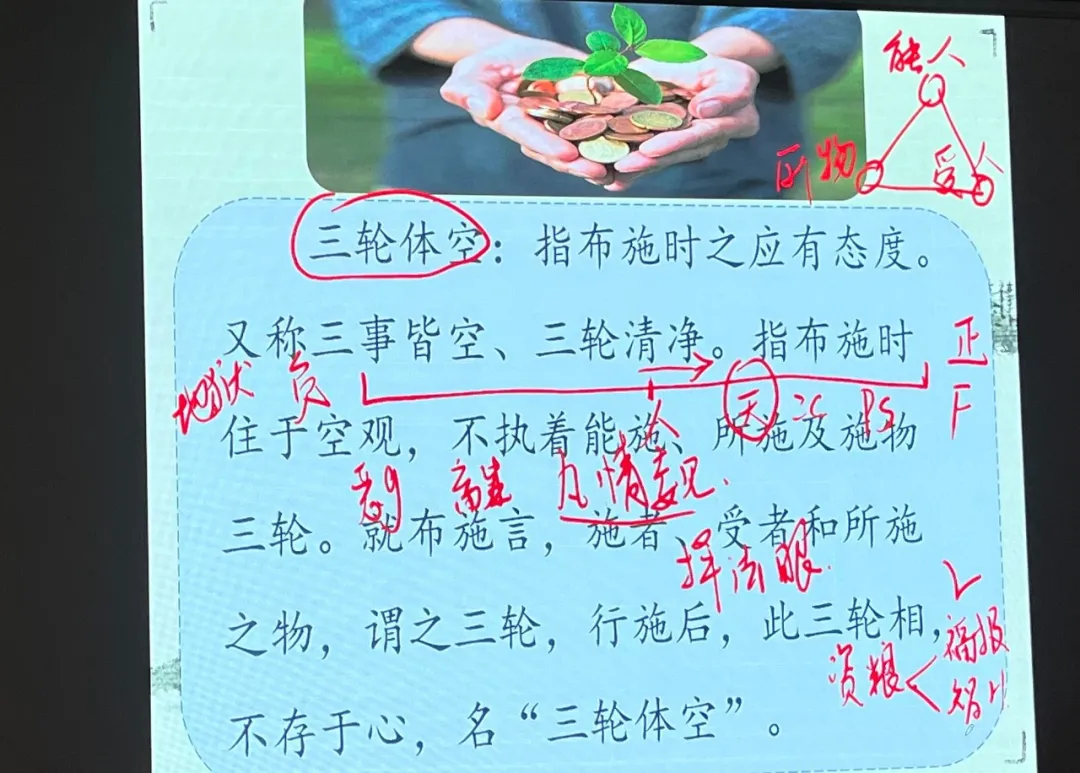 能人
所 物
受人
三轮体空：指布施时之应有态度。
又称三事皆空、三轮清净。指布施时
正
地狱
天
住于空观，不执着能施、所施及施物
凡情妄见
三轮。就布施言，施者、受者和所施
择法眼
之物，谓之三轮，行施后，此三轮相，
资粮
福报
不存于心，名“三轮体空”。